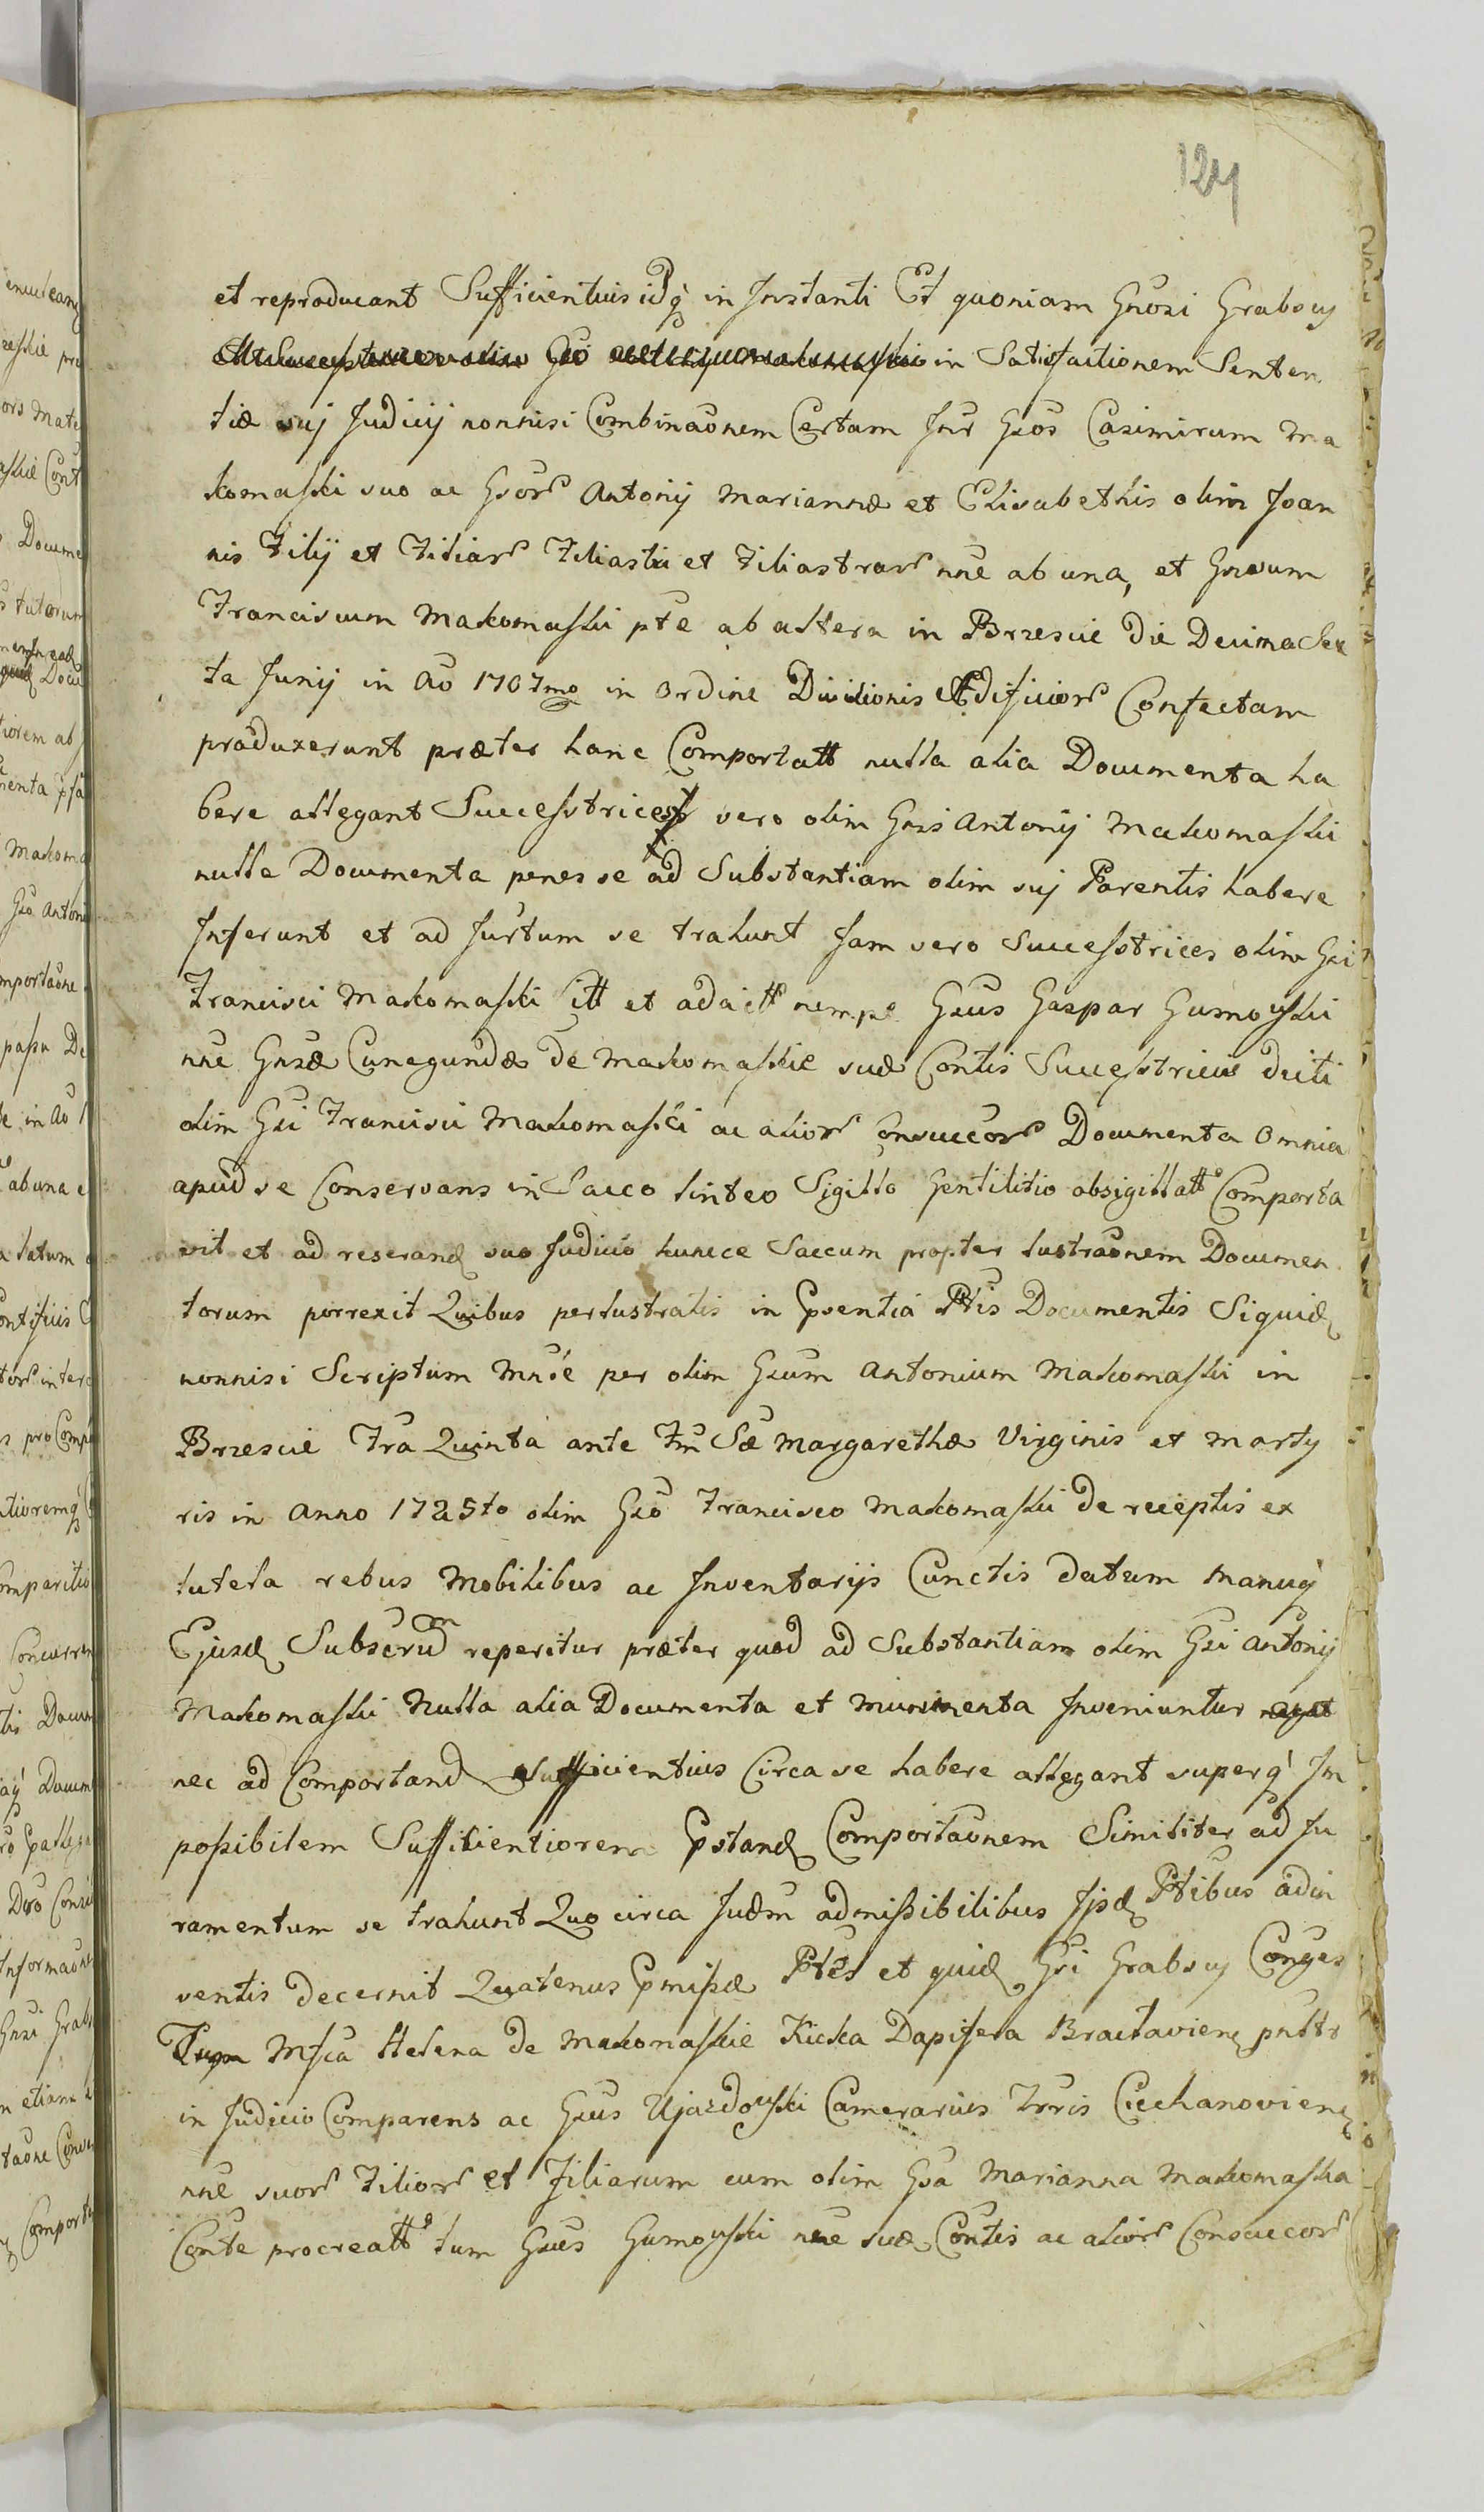 124
et reproducant Sufficientius idq̀ in Instanti Et quoniam Gnosi Grabscy
in Satisfactionem Senten
tiæ suj Judicij nonnisi Combinaōnem Certam Inr Gsos Casimirum Ma
komaſski suo ac Gsor̃ Antonij Mariannæ et Elisabethis olim Joan
nis Filij et Filiar̃ Filiastri et Filiastrar̃ nñe ab una, et Gnosum
Franciscum Makomaſski pte ab altera in Brzescie Die Decima Sex
ta Junij in Aō 1707mo in Ordine Divisionis Ædificior̃ Confectam
produxerunt præter hanc Comportatt nulla alia Documenta ha
bere allegant Succeſstrices vero olim Gnsi Antonij Makomaſski
nulla Documenta penes se ad Substantiam olim suj Parentis habere
Inferunt et ad Jurtum se trahunt Jam vero Succeſstrices olim Gsi
Francisci Makomaſski Citt et adcitt nempe Gsus Gaspar Gumoẃski
nñe Gnsæ Cunegundæ de Makomaſskie suæ Contis Succeſstricis dicti
olim Gsi Francisci Makomaſski ac alior̃ Consuccor̃ Documenta Omnia
apud se Conservans in Sacco linteo Sigillo Gentilitio obsigillatt Comporta
vit et ad reserand suo Judicio hunce Saccum propter lustraōnem Documen
torum porrexit Quibus perlustratis in Psentiá Ptis Documentis Siquid
nonnisi Scriptum Mnúe per olim Gsum Antonium Makomaſski in
Brzescie Fra Quinta ante Fm̃ Sæ Margarethæ Virginis et Marty
ris in Anno 1725to olim Gso Francisco Makomaſski de receptis ex
tutela rebus Mobilibus ac Inventarijs Cunctis datum Manuq̀
Ejusd Subscrm̃ reperitur præter quod ad Substantiam olim Gsi Antonij
Makomaſski Nulla alia Documenta et Munimenta Inveniuntur
nec ad Comportand Sufficientius Circa se habere allegant superq̀ Im
poſsibilem Sufficientiorem Pstand Comportaōnem Similiter ad Ju
ramentum se trahunt Quo circa Judm̃ admiſsibilibus Ijsd Ptibus adin
ventis decernit Quatenus Pmiſsæ Ptes et quid Gsi Grabscy Conges
Tum Mfca Helena de Makomaſskie Kicka Dapifera Braclavien pnltr
in Judicio Comparens ac Gsus Ujazdoẃski Camerarius Trris Ciechanovien
nñe suor̃ Filior̃ et Filiarum cum olim Gsa Marianna Makomaſska
Conte procreatt tum Gsus Gumoẃski nñe suæ Contis ac alior̃ Consuccor̃